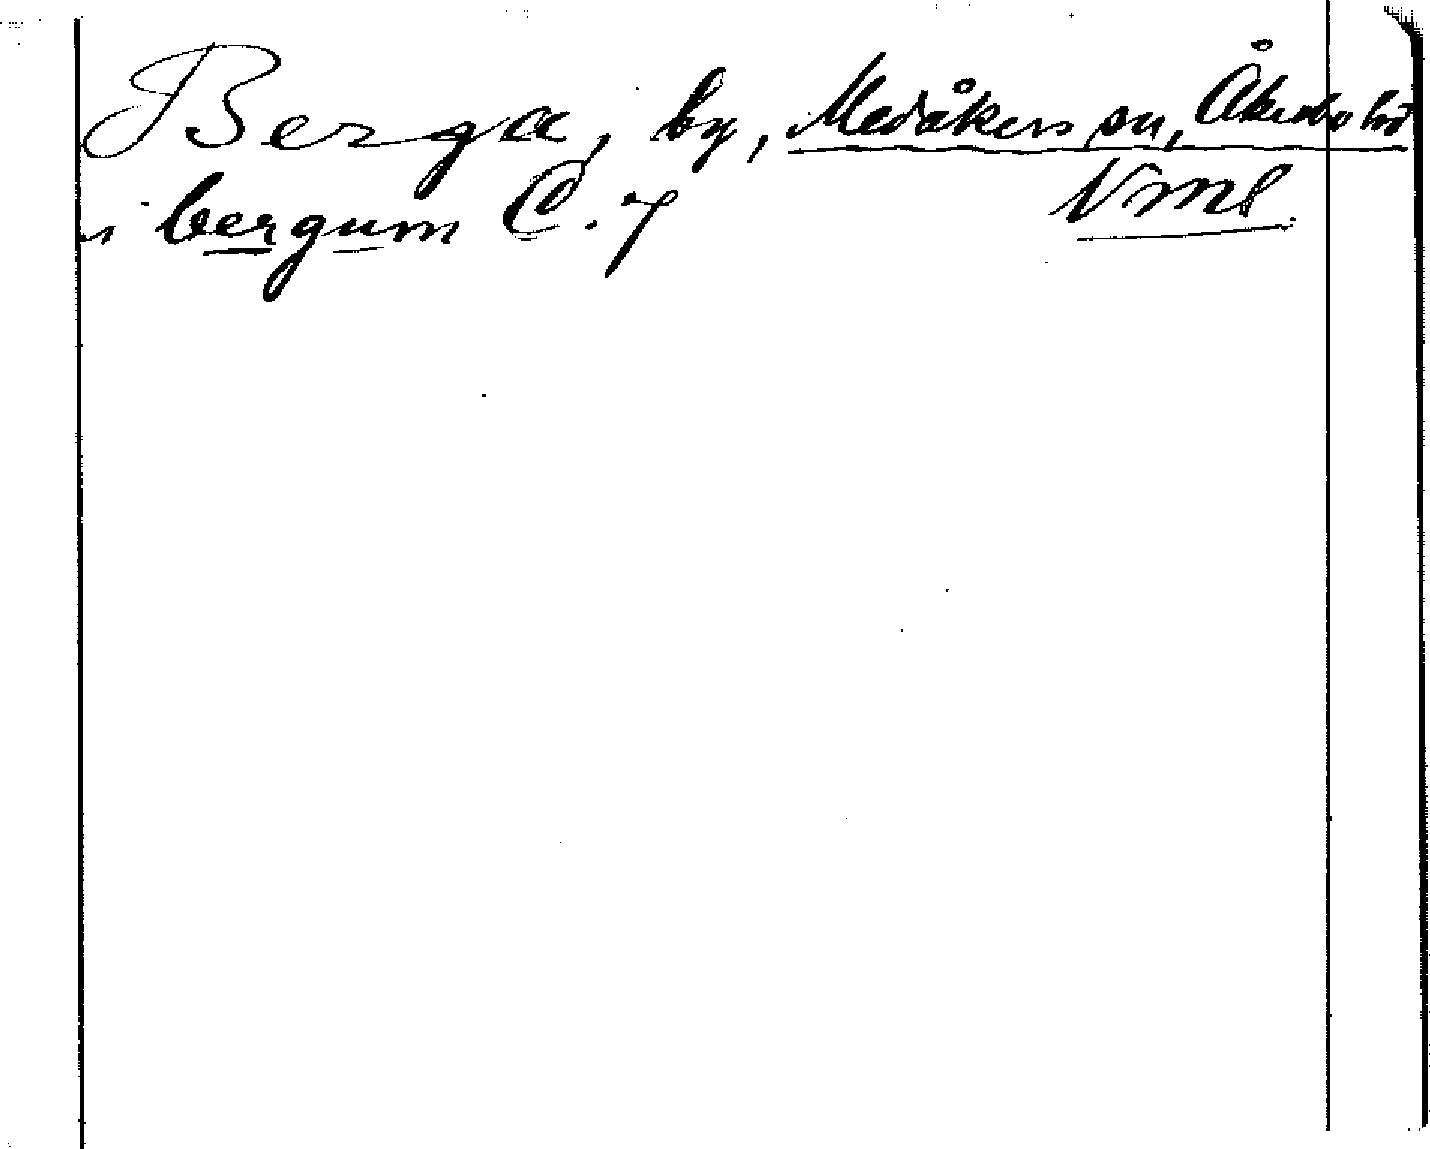 Berga, by, Medåkers sn, Åkerbo hd
i bergum C. 7 Vml